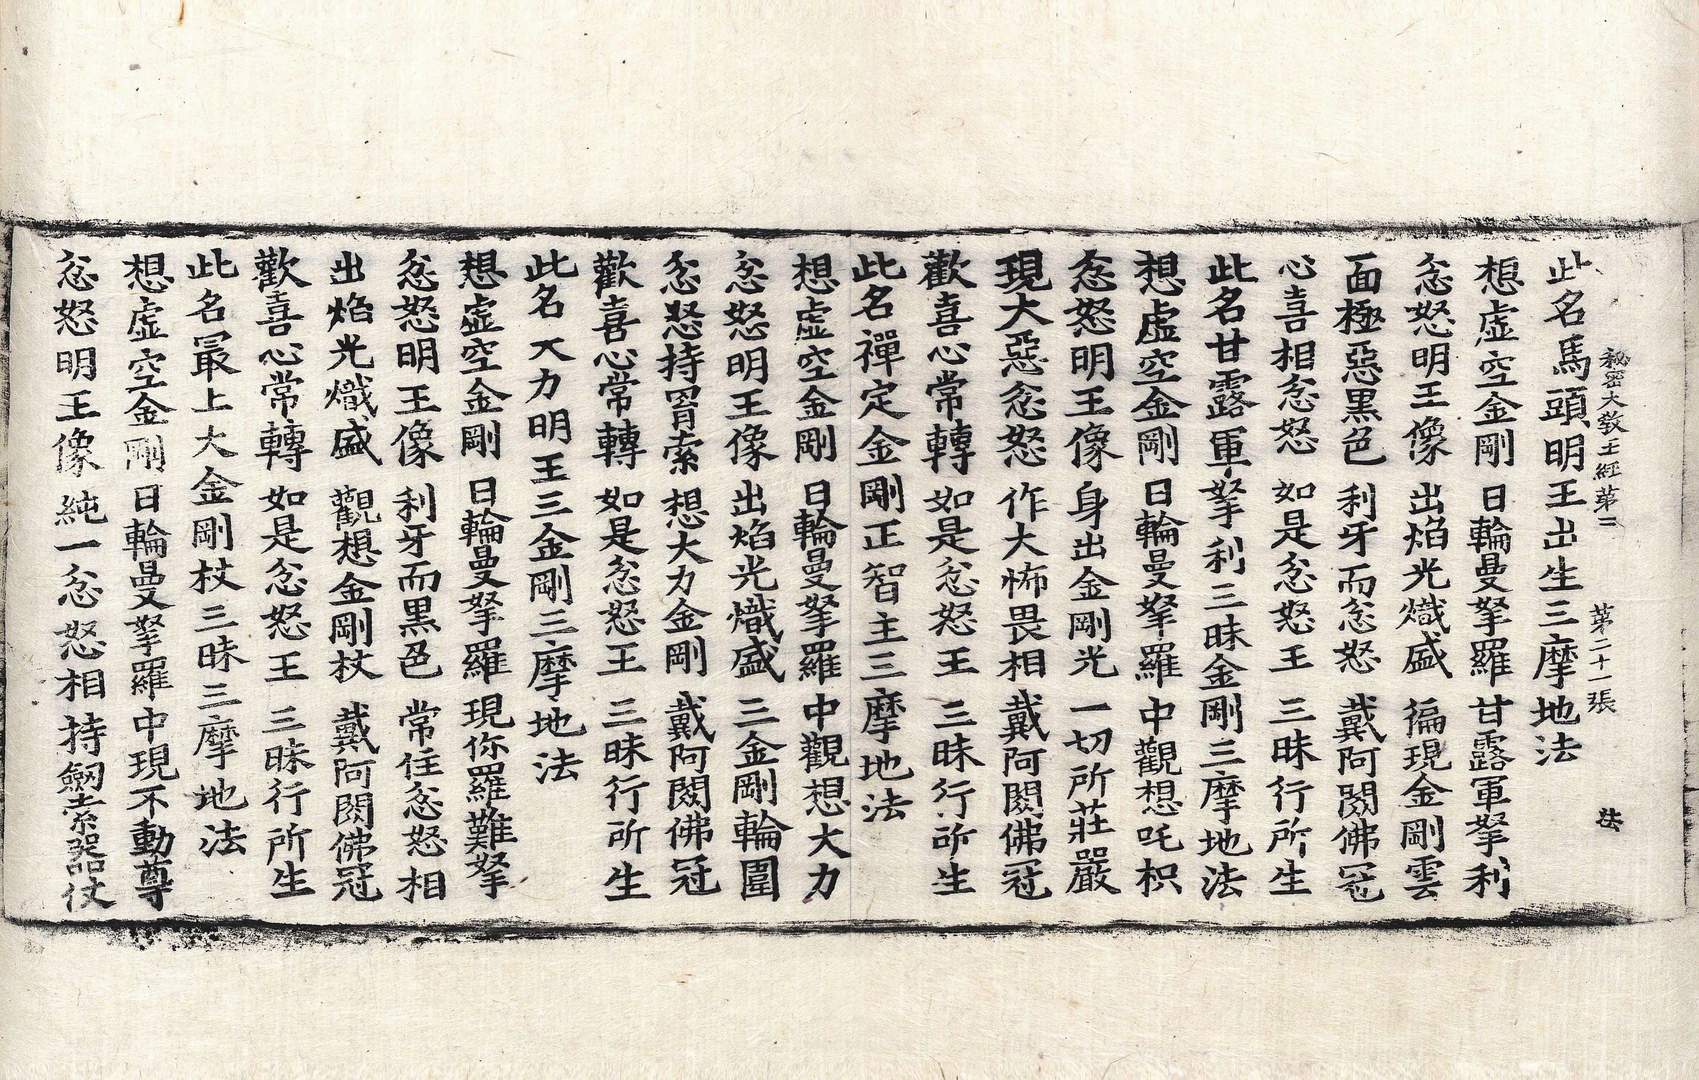 秘密大教王經第三 第二十一張 法
此名馬頭明王出生三摩地法
想虛空金剛 日輪曼拏羅 甘露軍拏利
忿怒明王像 出焰光熾盛 徧現金剛雲
面極惡黑色 利牙而忿怒 戴阿閦佛冠
心喜相忿怒 如是忿怒王 三昧行所生
此名甘露軍拏利三昧金剛三摩地法
想虛空金剛 日輪曼拏羅 中觀想吒枳
忿怒明王像 身出金剛光 一切所莊嚴
現大惡忿怒 作大怖畏相 戴阿閦佛冠
歡喜心常轉 如是忿怒王 三昧行所生
此名禪定金剛正智主三摩地法
想虛空金剛 日輪曼拏羅 中觀想大力
忿怒明王像 出焰光熾盛 三金剛輪圍
忿怒持罥索 想大力金剛 戴阿閦佛冠
歡喜心常轉 如是忿怒王 三昧行所生
此名大力明王三金剛三摩地法
想虛空金剛 日輪曼拏羅 現你羅難拏
忿怒明王像 利牙而黑色 常住忿怒相
出焰光熾盛 觀想金剛杖 戴阿閦佛冠
歡喜心常轉 如是忿怒王 三昧行所生
此名最上大金剛杖三昧三摩地法
想虛空金剛 日輪曼拏羅 中現不動尊
忿怒明王像 純一忿怒相 持劒索器仗